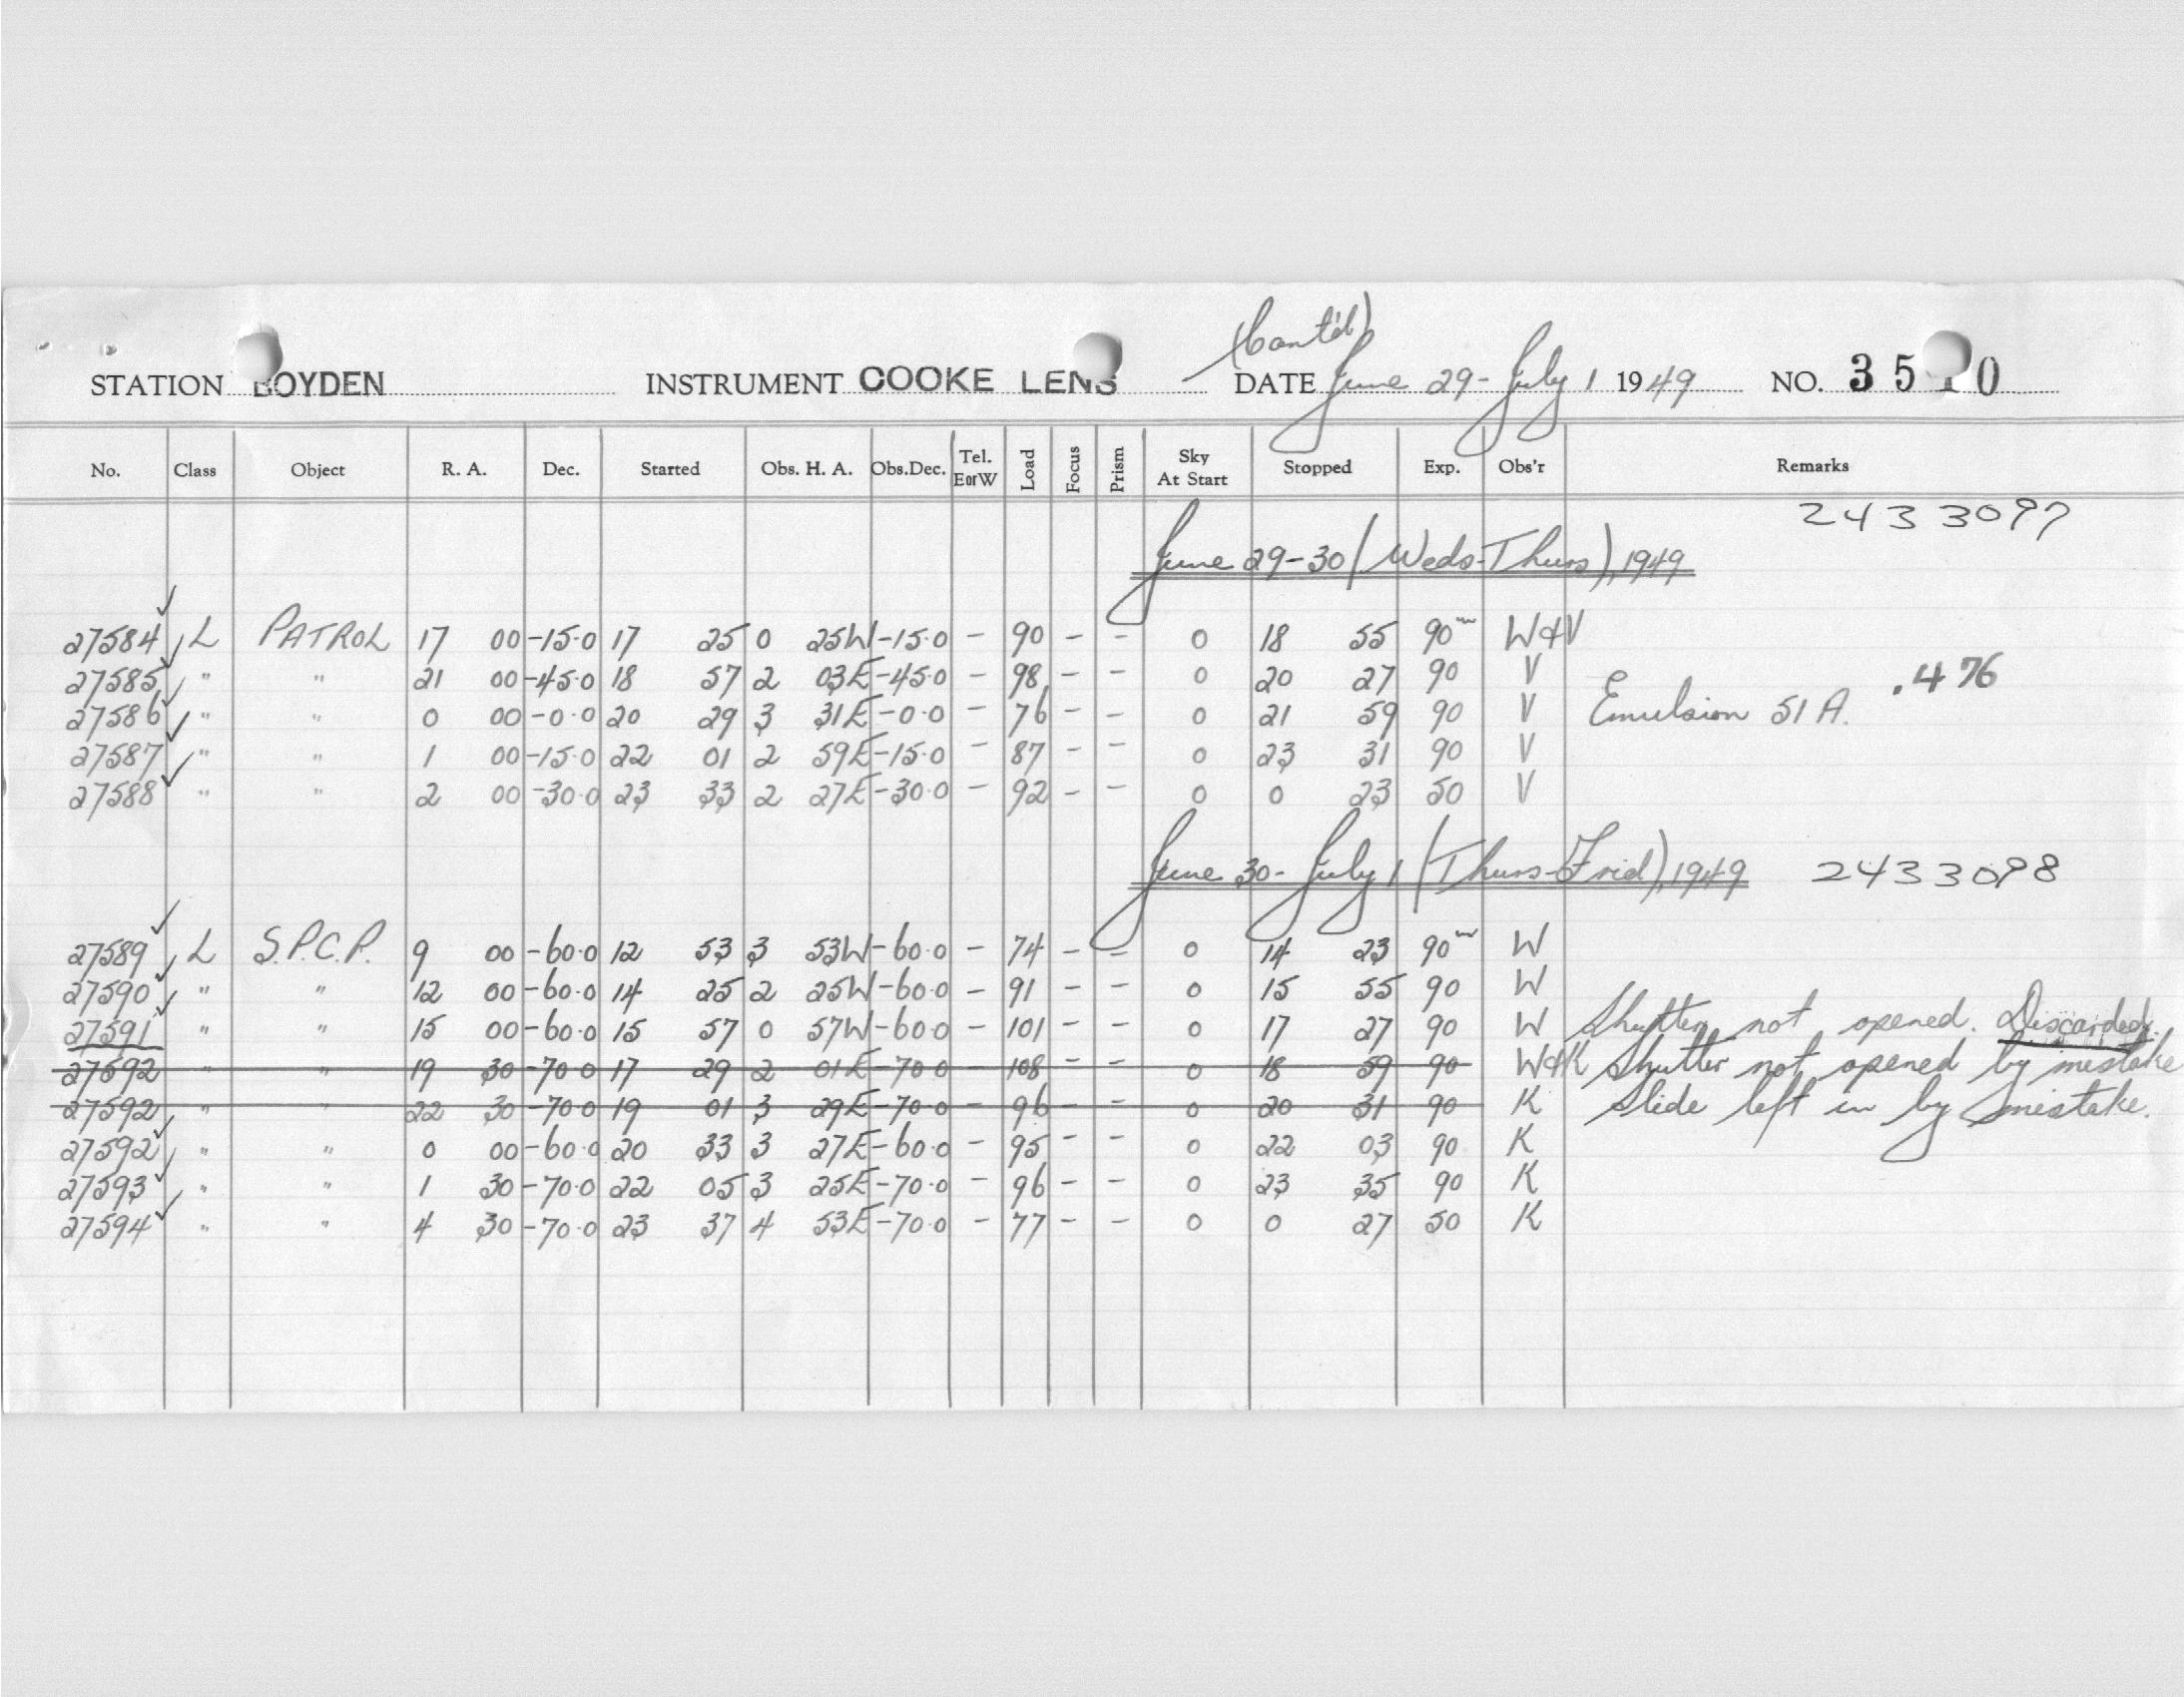 (Cont'd)
STATION BOYDEN INSTRUMENT COOKE LENS DATE June 29 - July 1 1949 NO. 35 0
No. Class Object R. A. Dec. Started Obs. H. A. Obs.Dec. Tel. EorW Load Focus Prism Sky At Start Stopped Exp. Obs'r Remarks
2433097
June 29-30 (Weds-Thurs), 1949
27584 ✓ L PATROL 17 00 -15.0 17 25 0 25W -15.0 - 90 - - 0 18 55 90m W&V
27585 ✓ " " 21 00 -45.0 18 57 2 03E -45.0 - 98 - - 0 20 27 90 V .476
27586 ✓ " " 0 00 -0.0 20 29 3 31E -0.0 - 76 - - 0 21 59 90 V Emulsion 51A.
27587 ✓ " " 1 00 -15.0 22 01 2 59E -15.0 - 87 - - 0 23 31 90 V
27588 ✓ " " 2 00 -30.0 23 33 2 27E -30.0 - 92 - - 0 0 23 50 V
June 30 - July 1 (Thurs-Frid), 1949 2433098
27589 ✓ L S.P.C.P. 9 00 -60.0 12 53 3 53W -60.0 - 74 - - 0 14 23 90m W
27590 ✓ " " 12 00 -60.0 14 25 2 25W -60.0 - 91 - - 0 15 55 90 W
27591 ✓ " " 15 00 -60.0 15 57 0 57W -60.0 - 101 - - 0 17 27 90 W Shutter not opened. Discarded.
27592 " " 19 30 -70.0 17 29 2 01E -70.0 - 108 - - 0 18 59 90 W&K Shutter not opened by mistake
27592 " " 22 30 -70.0 19 01 3 29E -70.0 - 96 - - 0 20 31 90 K Slide left in by mistake.
27592 ✓ " " 0 00 -60.0 20 33 3 27E -60.0 - 95 - - 0 22 03 90 K
27593 ✓ " " 1 30 -70.0 22 05 3 25E -70.0 - 96 - - 0 23 35 90 K
27594 ✓ " " 4 30 -70.0 23 37 4 53E -70.0 - 77 - - 0 0 27 50 K